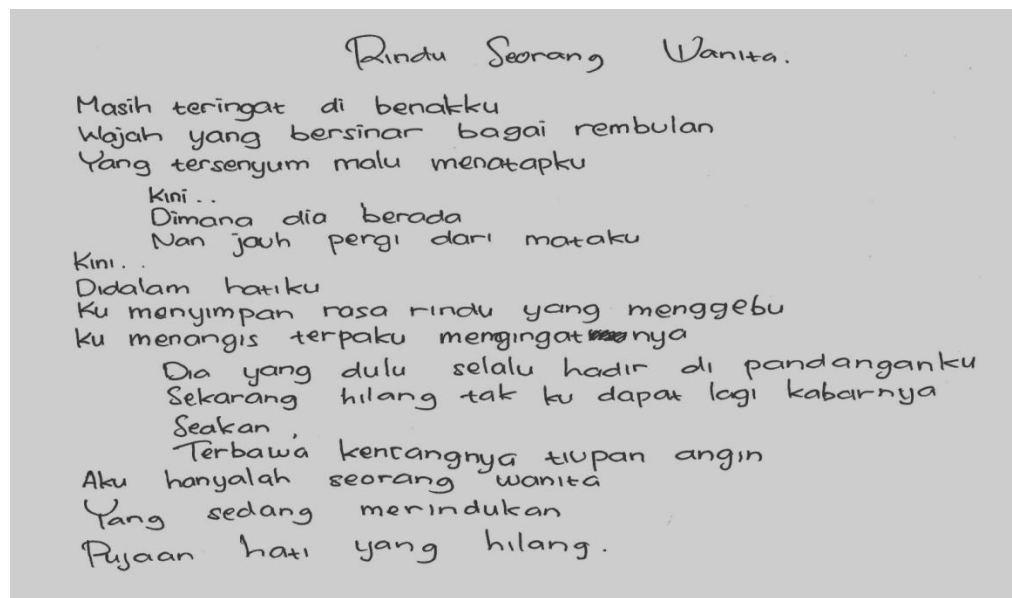 Rindu Seorang Wanita.
Masih teringat di benakku
Wajah yang bersinar bagai rembulan
Yang tersenyum malu menatapku
Kini..
Dimana dia berada
Nan jauh pergi dari mataku
Kini..
Didalam hatiku
Ku menyimpan rasa rindu yang menggebu
ku menangis terpaku mengingatnya
Dia yang dulu selalu hadir di pandanganku
Sekarang hilang tak ku dapat lagi kabarnya
Seakan,
Terbawa kencangnya tiupan angin
Aku hanyalah seorang wanita
Yang sedang merindukan
Pujaan hati yang hilang.